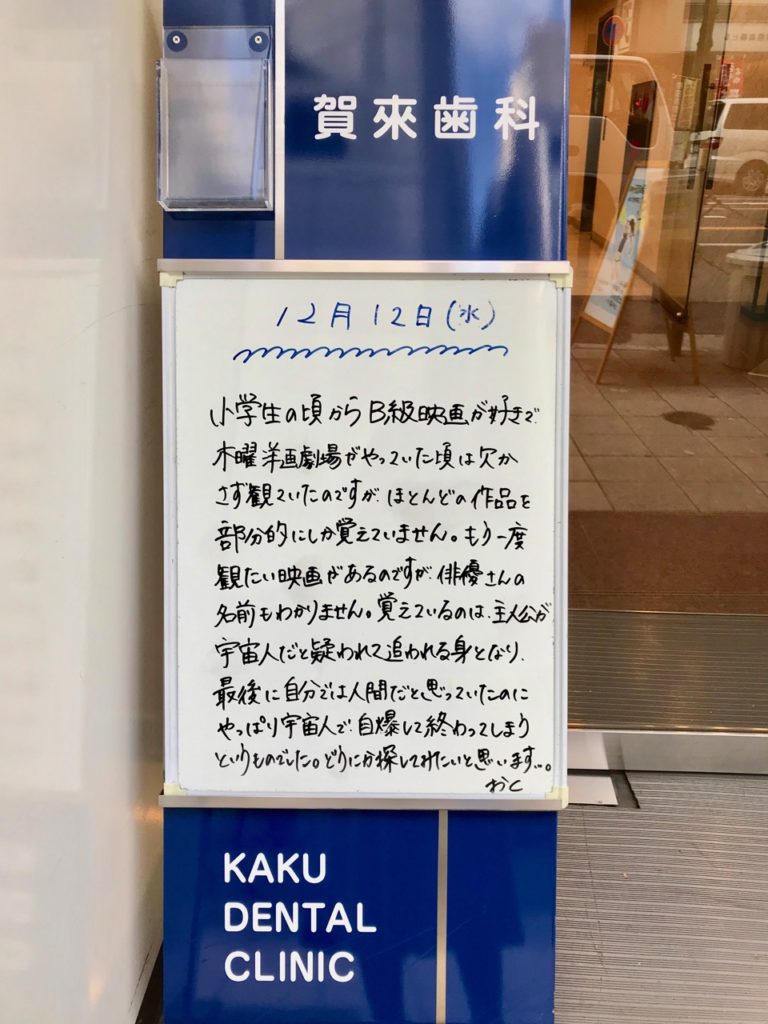 賀來歯科
12月12日(水)
小学生の頃からB級映画が好きで
木曜洋画劇場がやっていた頃は欠か
さず観ていたのですが、ほとんどの作品を
部分的にしか覚えていません。もう一度
観たい映画があるのですが、俳優さんの
名前もわかりません。覚えているのは、主人公が
宇宙人だと疑われて追われる身となり、
最後に自分では人間だと思っていたのに
やっぱり宇宙人で、自爆して終わってしまう
というものでした。どうにか探してみたいと思います…。
おく
KAKU
DENTAL
CLINIC